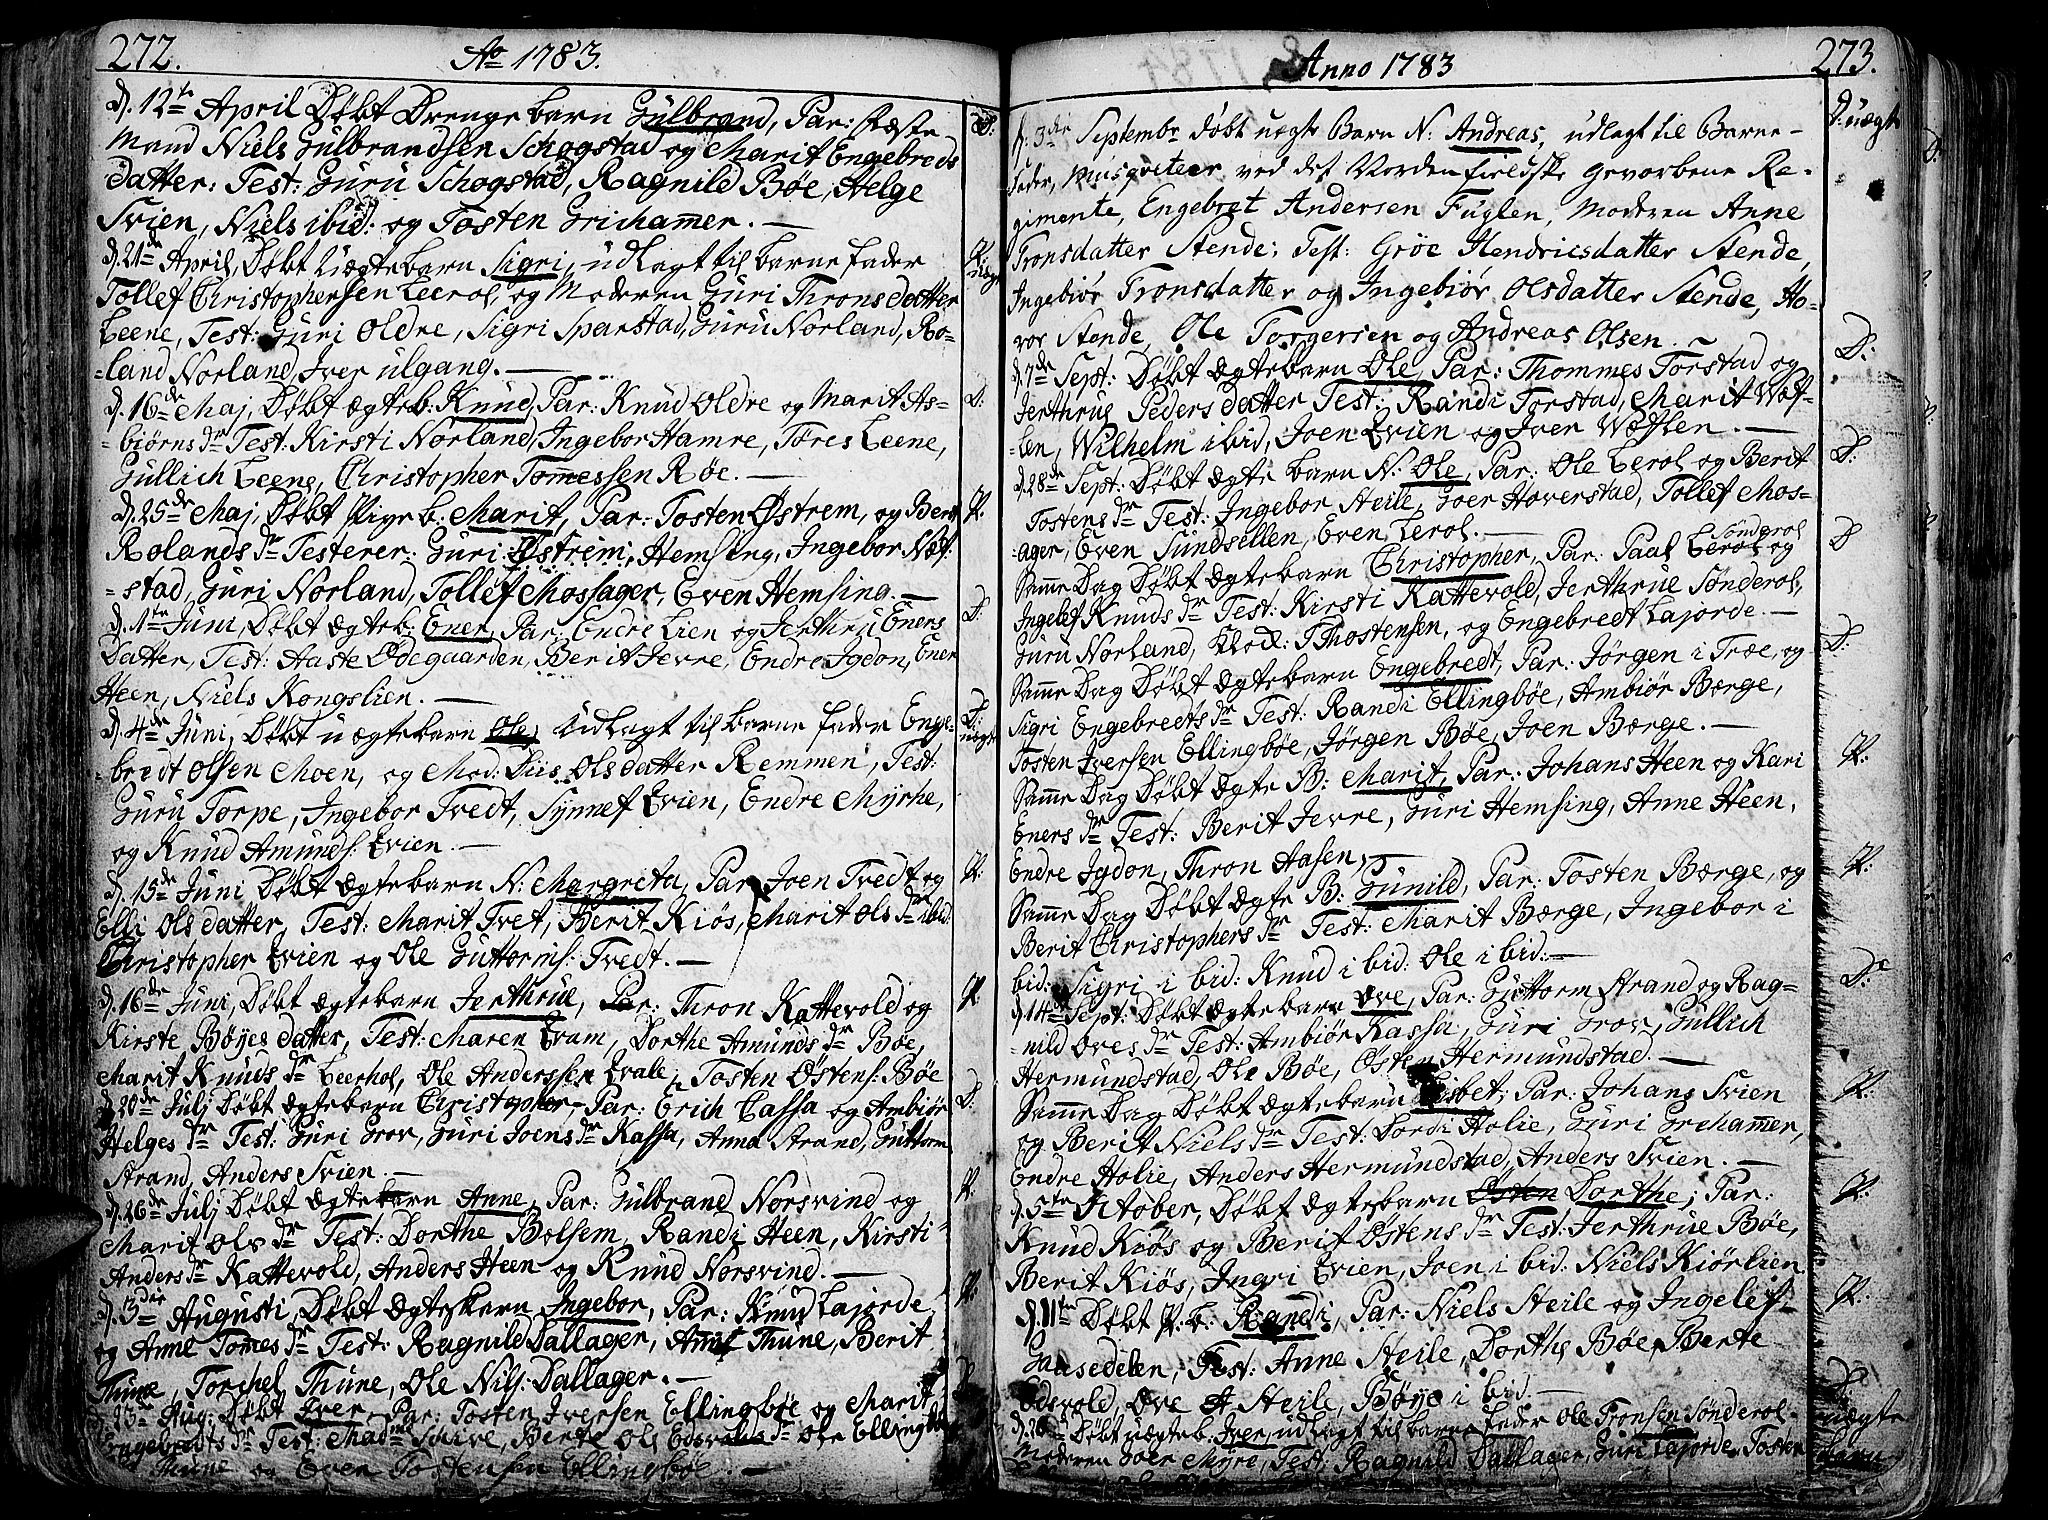 272.
Ao 1783.
d. 12te April Døbt Drengebarn Gulbrand, Par: Fæste
Mand Niels Gulbrandsen Schogstad og Marit Engebreds
datter: Test: Guru Schogstad, Ragnild Bøe, Helge
Svien, Niels ibid: og Tosten Grihamer.
D:
d. 21de April, Døbt Uægtebarn Sigri, udlagt til barne fader
Tollef Christophersen Leerol, og Moderen Guri Throns datter
Leene, Test: Guri Oldre, Sigri Sparstad, Guru Norland, Ro-
=land Norland, Iver ulgang.
P: uægt
d. 16de Maj, Døbt ægteb: Knud, Par: Knud Oldre og Marit As-
=biørns dr Test: Kirsti Norland, Ingebor Hamre, Tores Leene,
Gullich Leene, Christopher Tomessen Røe.
D.
d. 25de Maj Døbt Pigeb: Marit, Par: Tosten Østrem, og Berit
Rolands dr Testerer: Guri Østrim, Hemsing, Ingebor Næf-
=stad, Guri Norland, Tollef Mossager, Even Hemsing.
P.
d. 1te Juni, Døbt ægteb: Ener, Par: Endre Lien og Jerthru Eners
Datter, Test: Aaste Ødegaarden, Berit Jevre, Endre Jgdon, Ener
Heen, Niels Kongslien.
D.
d. 4de Juni, Døbt uægtebarn Ole, Udlagt til barne fader Enge-
=bredt Olsen Moen, og Mod: Siis Olsdatter Remmen, Test:
Guru Torpe, Ingebor Tvedt, Synnef Qvien, Endre Myrhe,
og Knud Amunds: Qvien.
D: uægt
d. 15de Juni Døbt Ægtebarn N: Margreta, Par: Joen Tvedt og
Elli Olsdatter, Test: Marit Tvet, Berit Kiøs, Marit Ols dr ibid
Christopher Qvien og Ole Guttorms: Tvedt.
P:
d. 16de Juni, Døbt ægtebarn Jerthrue, Par: Thron Kattevold og
Kirste Bøyes datter, Test: Maren Qvam, Dorthe Amunds dr Bøe,
Marit Knuds dr Leerhol, Ole Anderssen Qvale, Tosten Østens: Bøe
P:
d. 20de Julj Døbt ægtebarn Christopher, Par: Erich Cassa og Ambiør
Helges dr Test: Guri Grov, Guri Joens dr Kassa, Anna Strand, Guttorm
Strand, Anders Svien.
D.
d. 26de Julj Døbt ægtebarn Anne, Par: Gulbrand Norsvind og
Marit Ols dr Test: Dorthe Bolsem, Randi Heen, Kirsti
Anders dr Kattevold, Anders Heen og Knud Norsvind.
P.
d. 3die Augusti, Døbt Ægtebarn Ingebor, Par: Knud Lajorde
og Anne Tomes dr Test: Ragnild Dallager, Anne Thune, Berit
Thune, Torchel Thune, Ole Nils: Dallager.
P.
d. 23de Aug: Døbt Iver, Par: Tosten Iversen Ellingbøe og Marit
Engebredts dr Test: Made Schive, Berte Ols Edsvolds dr Ole Ellingbøe
Thune og Even Tostensen Ellingbøe.
D
Anno 1783
273.
d. 3die Septembr døbt uægte Barn N: Andreas, udlagt til Barne-
fader, Musqueteer ved det Nordenfieldske Gevorbene Re-
gimente, Engebret Andersen Fuglen, Modren Anne
Tronsdatter Stende; Test: Grøe Hendricsdatter Stende,
Ingebiør Tronsdatter og Ingebiør Olsdatter Stende, Ho-
vor Stende, Ole Torgersen og Andreas Olsen.
D: uægte
d. 7de Sept: Døbt ægtebarn Ole, Par: Thommes Torstad og
Jerthrug Pedersdatter Test: Randi Torstad, Marit Wøf-
=len, Wilhelm ibid, Joen Qvien og Iver Wøflen.
D:
d. 28de Sept: Døbt ægte barn N: Ole, Par: Ole Lerol og Berit
Tostens dr Test: Ingebor Steile, Goer Hoverstad, Tollef Mos-
=ager, Even Sundsellen, Even Lerol.
D:
Samme Dag Døbt ægtebarn Christopher, Par: Paal Lerol Sønderol og
Ingelef Knuds dr Test: Kirsti Kattevold, Jerthrue Sønderol,
Guru Norland, Thostensen, og Engebredt Lajorde.
D
Samme Dag Døbt Ægtebarn Engebredt, Par: Jørgen i Træe, og
Sigri Engebredts dr Test: Randi Ellingbøe, Ambiør Børge,
Tosten Iversen Ellingbøe, Jørgen Bøe, Joen Børge.
D:
Samme Dag Døbt ægte B: Marit, Par: Johans Heen og Kari
Eners dr Test: Berit Jevre, Guri Hemsing, Anne Heen,
Endre Jgdon, Thron Aasen,
P:
Samme Dag Døbt Ægte B: Gunild, Par: Tosten Børge, og
Berit Christophers dr Test: Marit Børge, Ingebor i
bid: Sigri i bid: Knud i bid: Ole i bid:
P.
d. 14de Sept: Døbt Ægtebarn Ove, Par: Guttorm Strand og Rag-
=nild Oves dr Test: Ambiør Kassa, Guri Grov, Gullich
Hermundstad, Ole Bøe, Østen Hermundstad.
D:
Samme Dag Døbt Ægtebarn Lisbet; Par: Johans Svien
og Berit Niels dr Test: Dordi Holie, Guri Grihammer,
Endre Holie, Anders Hermundstad, Anders Svien.
P:
d. 5te October, Døbt Ægtebarn Østen Dorthe; Par:
Knud Kiøs og Berit Østens dr Test: Jerthrue Bøe,
Berit Kiøs, Ingri Qvien, Joen i bid: Niels Kiørlien
P:
d. 11te Døbt P. b: Randi, Par: Niels Steile og Ingelef
Gausedelen, Test: Anne Steile, Dorthe Bøe, Berte
Edsvold, Ove A Steile, Bøye i bid.
P:
d. 26de Døbt uægteb. Iver, udlagt til barnefader Ole Tronsen Sønderol
Moderen Goer Myre, Test: Ragnild Dallager, Guri Lajorde, Tosten
D: uægte barn